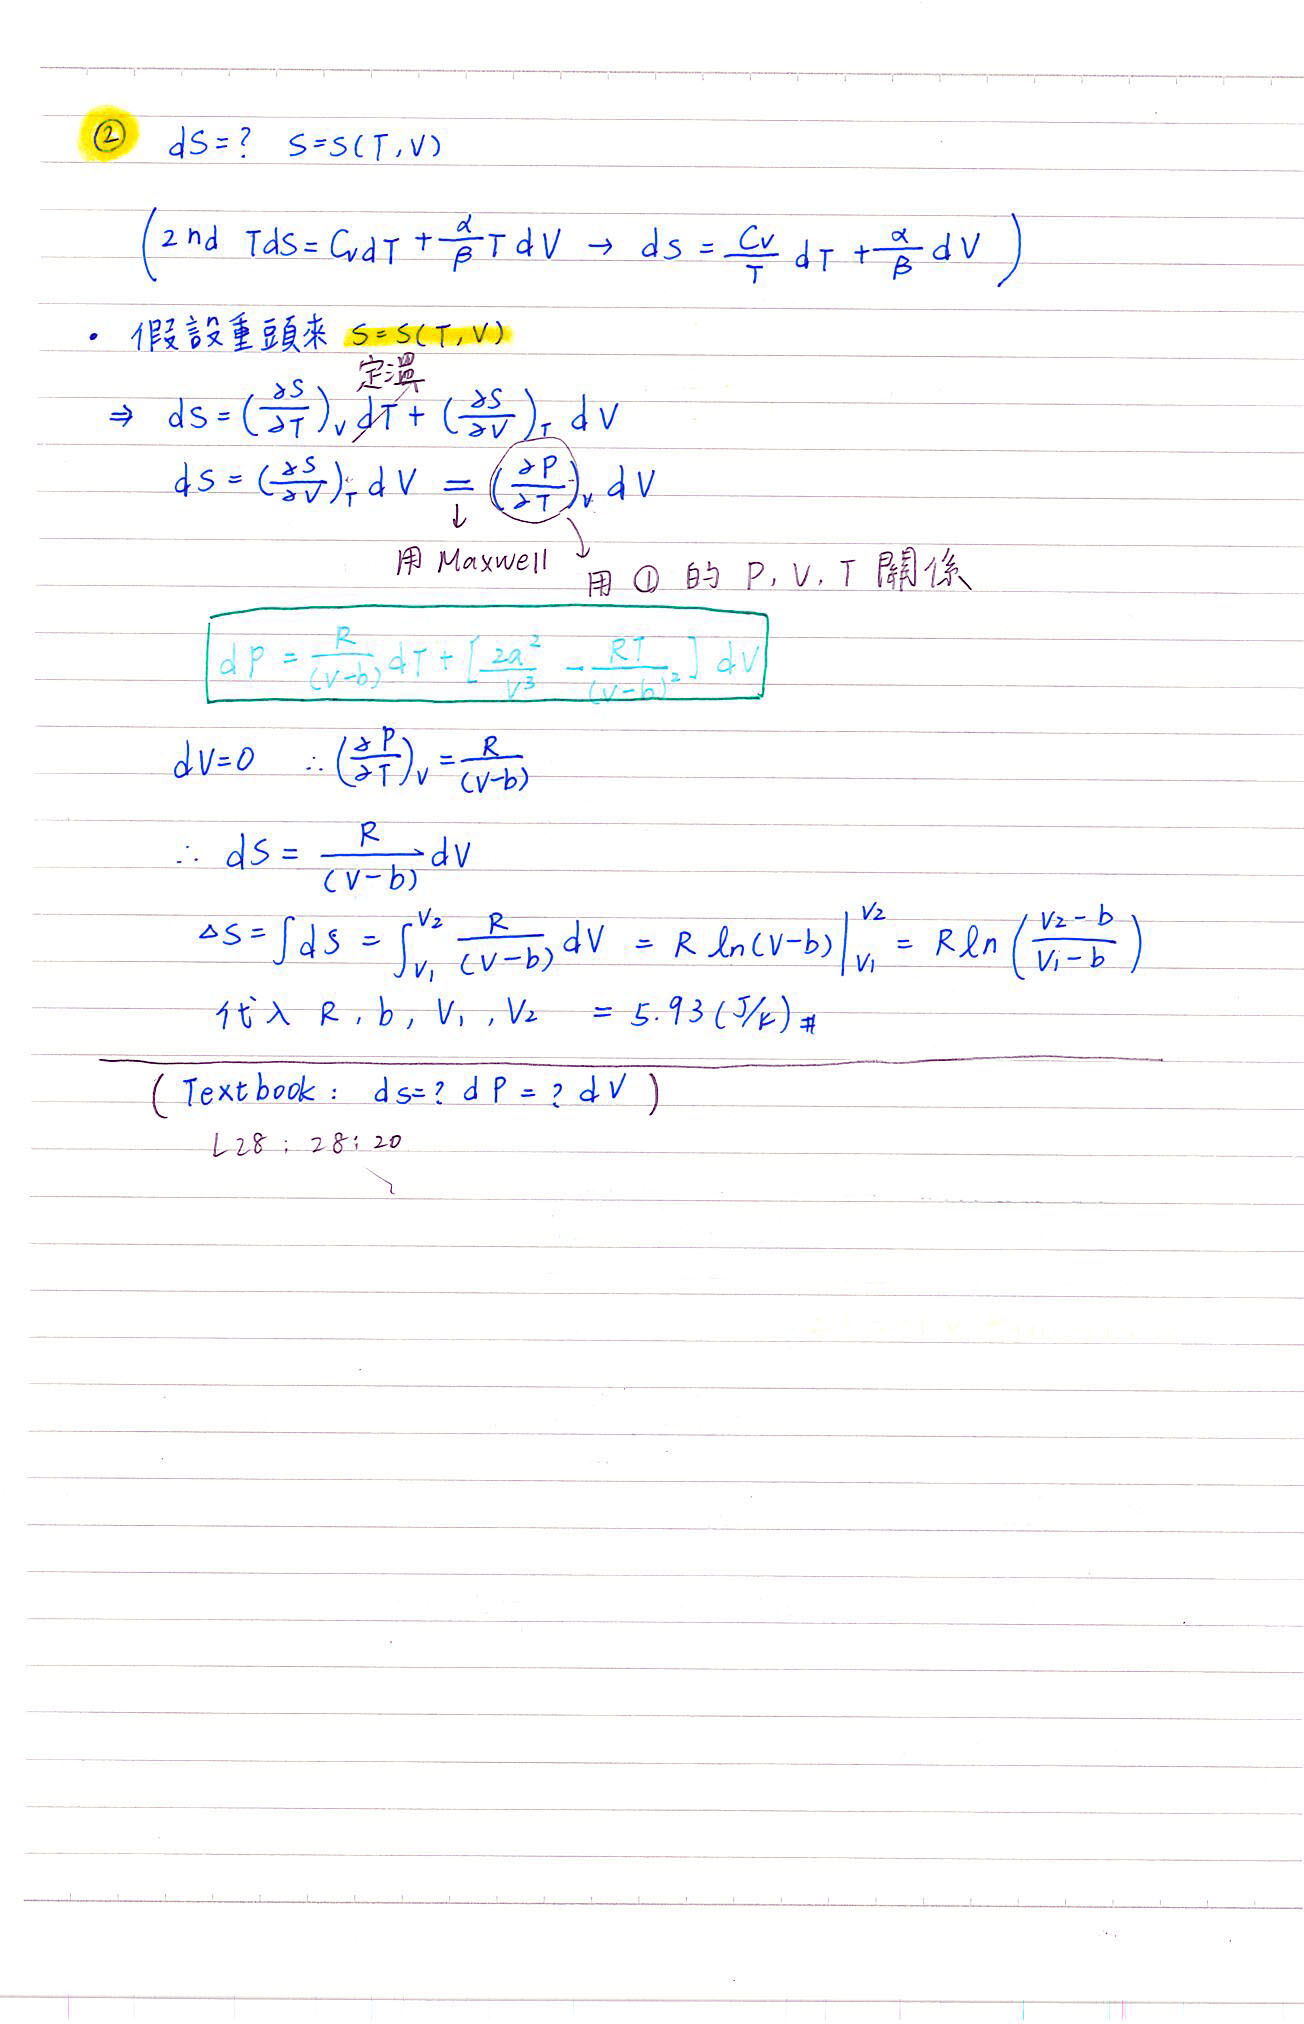 ② dS=? S=S(T,V)
(2nd TdS=CvdT+α/β TdV → dS=Cv/T dT+α/β dV)
· 假設重頭來 S=S(T,V)
定溫
⇒ dS=(∂S/∂T)V dT+(∂S/∂V)T dV
dS=(∂S/∂V)T dV = (∂P/∂T)V dV
↓ 用 Maxwell
用 ① 的 P, V, T 關係
dP = R/(V-b) dT + [2a²/V³ - RT/(V-b)²] dV
dV=0 ∴ (∂P/∂T)V = R/(V-b)
∴ dS = R/(V-b) dV
ΔS=∫dS = ∫V1 V2 R/(V-b) dV = R ln(V-b)|V1 V2 = R ln (V2-b/V1-b)
代入 R, b, V1, V2 = 5.93 (J/K) #
(Textbook: ds=? dP=? dV)
L28 ; 28:20